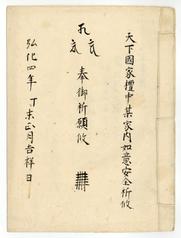 天下國家檀中某家内如意安全祈攸
奉御祈願攸
弘化四年丁未正月吉祥日